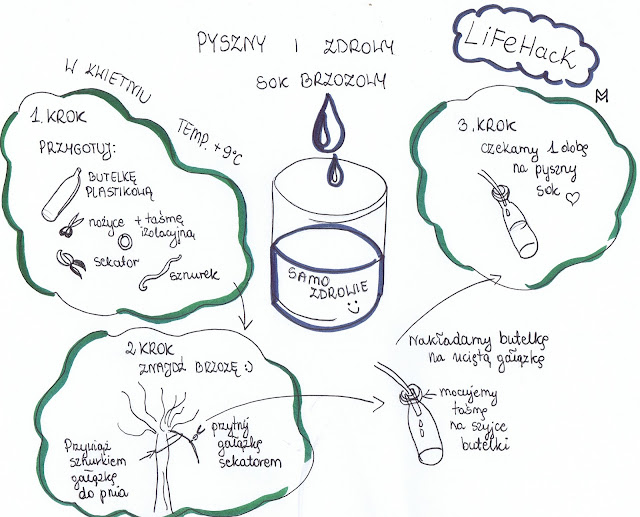 LiFeHacK
PYSZNY I ZDROWY
SOK BRZOZOWY
W KWIETNIU
TEMP. +9°C
1. KROK
PRZYGOTUJ:
BUTELKĘ
PLASTIKOWĄ
nożyce + taśmę
izolacyjną
sekator
sznurek
2 KROK
ZNAJDŹ BRZOZĘ :)
Przywiąż
sznurkiem
gałązkę
do pnia
przytnij
gałązkę
sekatorem
Nakładamy butelkę
na uciętą gałązkę
mocujemy
taśmę
na szyjce
butelki
3. KROK
czekamy 1 dobę
na pyszny
sok ♡
SAMO
ZDROWIE
M